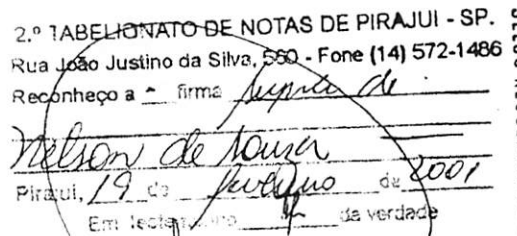 2.º TABELIONATO DE NOTAS DE PIRAJUI - SP.
Rua João Justino da Silva, 550 - Fone (14) 572-1486
Reconheço a firma supra de
Nelson de Souza
Pirajui, 19 de fevereiro de 2001
Em testemunho da verdade